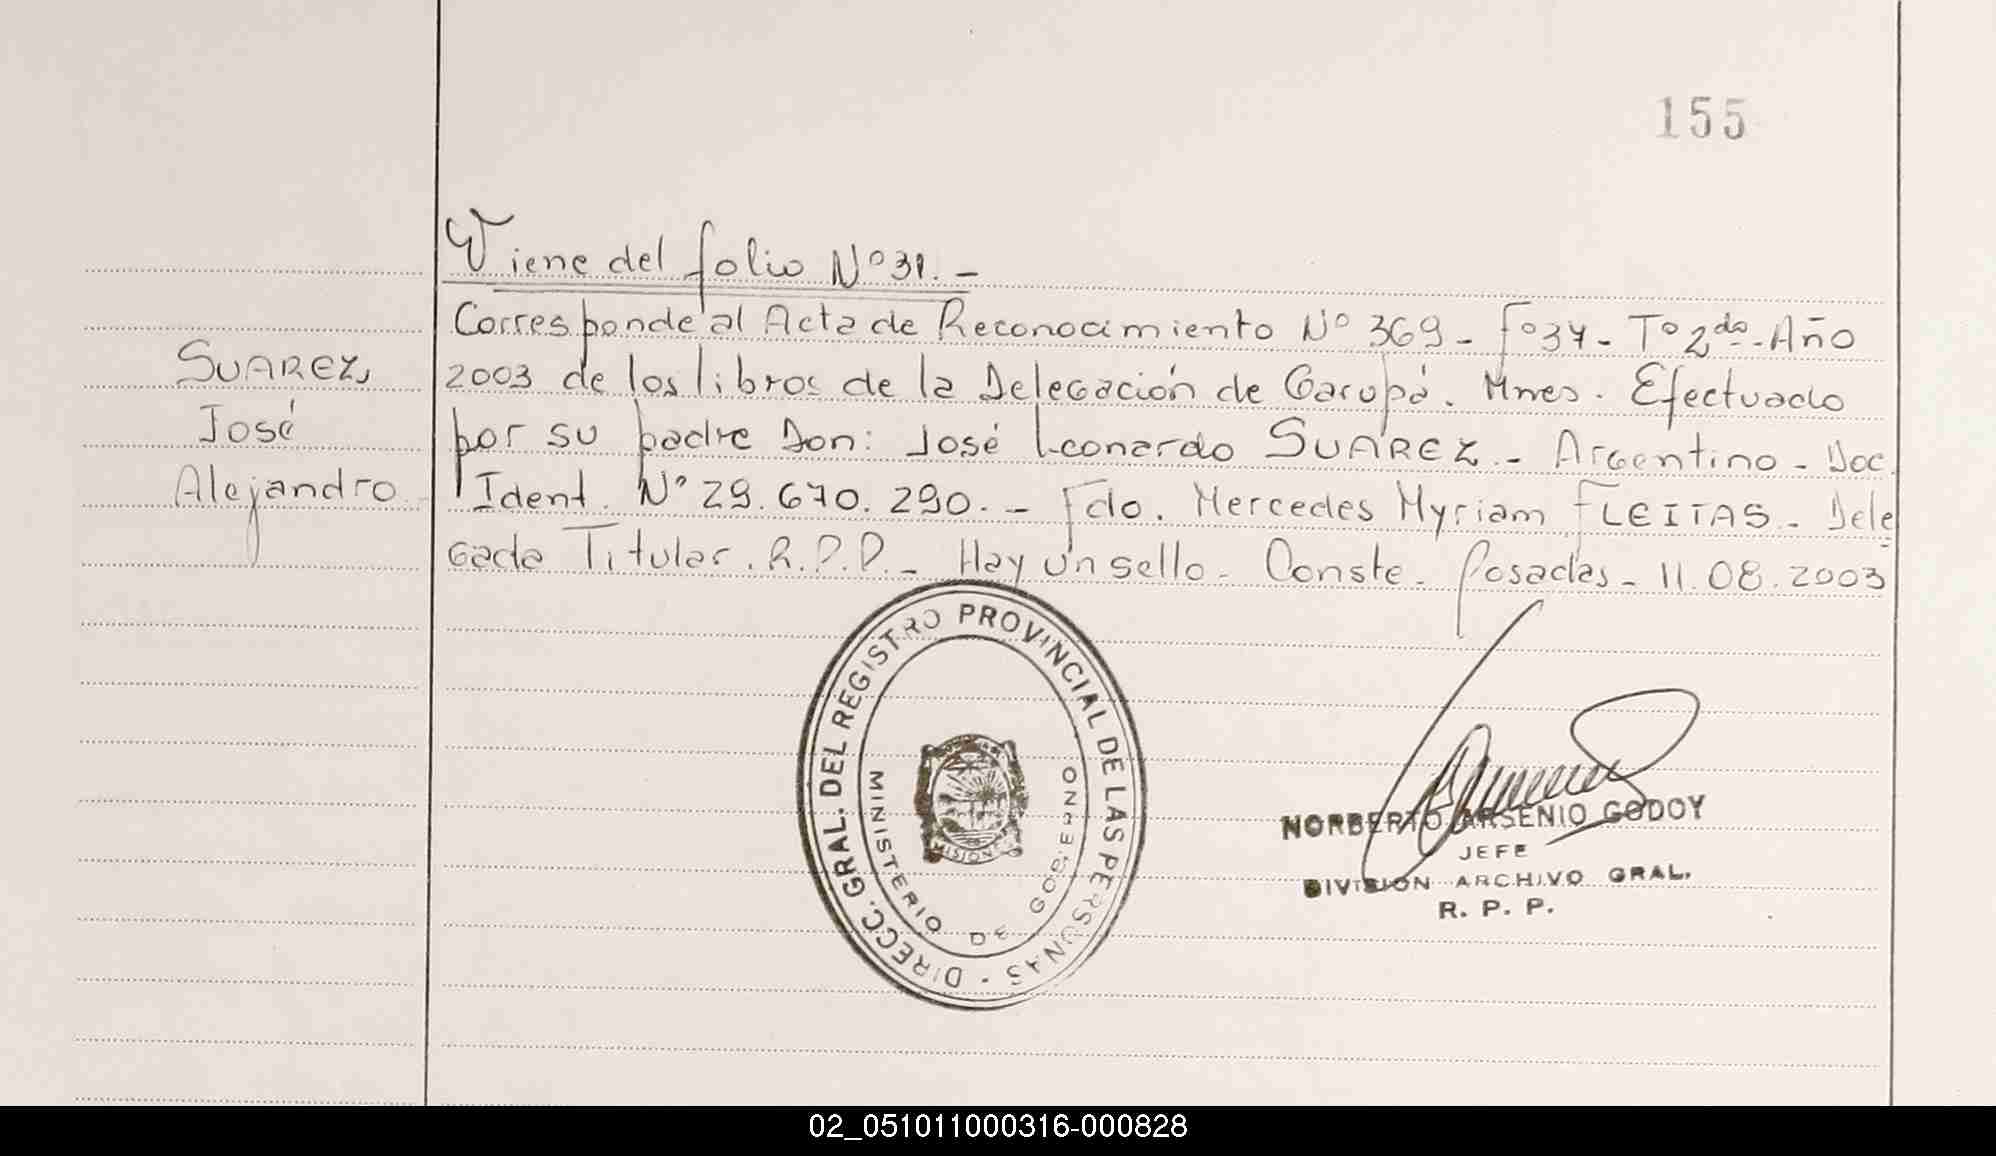 155
Viene del folio Nº 31. -
Corresponde al Acta de Reconocimiento Nº 369 - Fº 37 - Tº 2do - Año
SUAREZ,
2003 de los libros de la Delegación de Garupá. Mnes. Efectuado
José
por su padre Don: José Leonardo SUAREZ. - Argentino - Doc.
Alejandro
Ident. Nº 29.670.290. - Fdo. Mercedes Myriam FLEITAS - Dele
gada Titular. R.P.P. - Hay un sello - Conste - Posadas - 11.08.2003
DIRECC. GRAL. DEL REGISTRO PROVINCIAL DE LAS PERSONAS
MINISTERIO DE GOBIERNO
MISIONES
NORBERTO ARSENIO GODOY
JEFE
DIVISION ARCHIVO GRAL.
R. P. P.
02_051011000316-000828